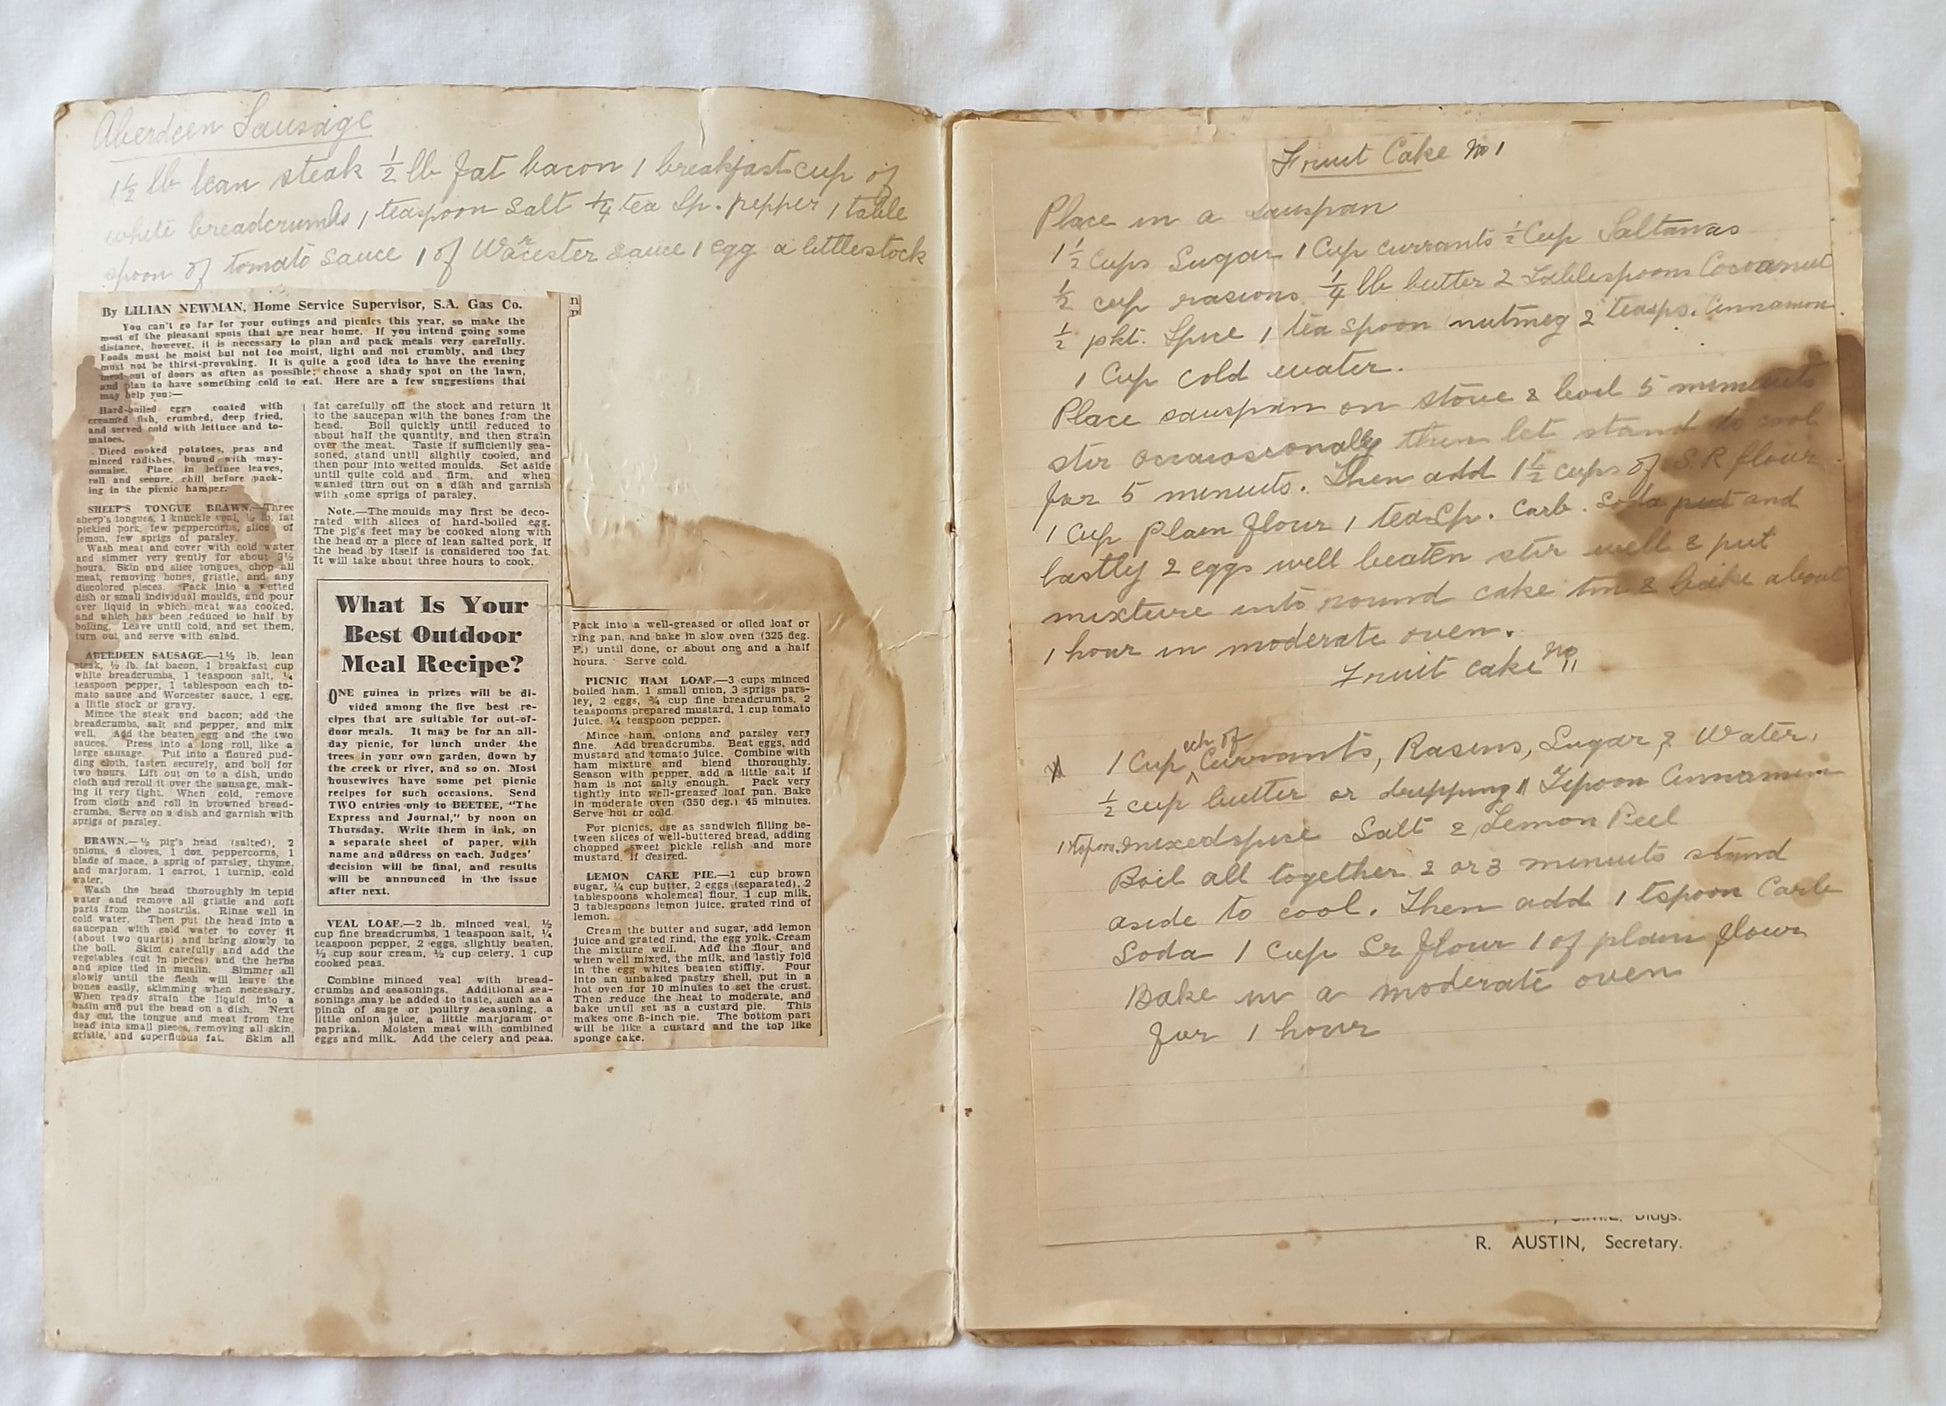 Aberdeen Sausage
1½ lb lean steak ½ lb fat bacon 1 breakfast cup of
white breadcrumbs 1 teaspoon Salt ¼ tea Sp. pepper 1 table
spoon of tomato sauce 1 of Worcester sauce 1 egg a little stock
By LILIAN NEWMAN, Home Service Supervisor, S.A. Gas Co.
You can't go far for your outings and picnics this year, so make the
most of the pleasant spots that are near home. If you intend going some
distance, however, it is necessary to plan and pack meals very carefully.
Foods must be moist but not too moist, light and not crumbly, and they
must not be thirst-provoking. It is quite a good idea to have the evening
meal out of doors as often as possible; choose a shady spot on the lawn,
and plan to have something cold to eat. Here are a few suggestions that
may help you:—
Hard-boiled eggs coated with
creamed fish, crumbed, deep fried,
and served cold with lettuce and to-
matoes.
Diced cooked potatoes, peas and
minced radishes, bound with may-
onnaise. Place in lettuce leaves,
roll and secure, chill before pack-
ing in the picnic hamper.
SHEEP'S TONGUE BRAWN.—Three
sheep's tongues, 1 knuckle veal, ½ lb. fat
pickled pork, few peppercorns, slice of
lemon, few sprigs of parsley.
Wash meat and cover with cold water
and simmer very gently for about 3½
hours. Skin and slice tongues, chop all
meat, removing bones, gristle, and any
discolored pieces. Pack into a wetted
dish or small individual moulds, and pour
over liquid in which meat was cooked,
and which has been reduced to half by
boiling. Leave until cold, and set them,
turn out and serve with salad.
ABERDEEN SAUSAGE.—1½ lb. lean
steak, ½ lb. fat bacon, 1 breakfast cup
white breadcrumbs, 1 teaspoon salt, ¼
teaspoon pepper, 1 tablespoon each to-
mato sauce and Worcester sauce, 1 egg,
a little stock or gravy.
Mince the steak and bacon; add the
breadcrumbs, salt and pepper, and mix
well. Add the beaten egg and the two
sauces. Press into a long roll, like a
large sausage. Put into a floured pud-
ding cloth, fasten securely, and boil for
two hours. Lift out on to a dish, undo
cloth and reroll it over the sausage, mak-
ing it very tight. When cold, remove
from cloth and roll in browned bread-
crumbs. Serve on a dish and garnish with
sprigs of parsley.
BRAWN.—½ pig's head (salted), 2
onions, 4 cloves, 1 doz. peppercorns, 1
blade of mace, a sprig of parsley, thyme,
and marjoram, 1 carrot, 1 turnip, cold
water.
Wash the head thoroughly in tepid
water and remove all gristle and soft
parts from the nostrils. Rinse well in
cold water. Then put the head into a
saucepan with cold water to cover it
(about two quarts) and bring slowly to
the boil. Skim carefully and add the
vegetables (cut in pieces) and the herbs
and spice tied in muslin. Simmer all
slowly until the flesh will leave the
bones easily, skimming when necessary.
When ready strain the liquid into a
basin and put the head on a dish. Next
day cut the tongue and meat from the
head into small pieces, removing all skin,
gristle, and superfluous fat. Skim all
fat carefully off the stock and return it
to the saucepan with the bones from the
head. Boil quickly until reduced to
about half the quantity, and then strain
over the meat. Taste if sufficiently sea-
soned, stand until slightly cooled, and
then pour into wetted moulds. Set aside
until quite cold and firm, and when
wanted turn out on a dish and garnish
with some sprigs of parsley.
Note.—The moulds may first be deco-
rated with slices of hard-boiled egg.
The pig's feet may be cooked along with
the head or a piece of lean salted pork, if
the head by itself is considered too fat.
It will take about three hours to cook.
What Is Your
Best Outdoor
Meal Recipe?
ONE guinea in prizes will be di-
vided among the five best re-
cipes that are suitable for out-of-
door meals. It may be for an all-
day picnic, for lunch under the
trees in your own garden, down by
the creek or river, and so on. Most
housewives have some pet picnic
recipes for such occasions. Send
TWO entries only to BEETEE, "The
Express and Journal," by noon on
Thursday. Write them in ink, on
a separate sheet of paper, with
name and address on each. Judges'
decision will be final, and results
will be announced in the issue
after next.
VEAL LOAF.—2 lb. minced veal, ½
cup fine breadcrumbs, 1 teaspoon salt, ¼
teaspoon pepper, 2 eggs, slightly beaten,
½ cup sour cream, ½ cup celery, 1 cup
cooked peas.
Combine minced veal with bread-
crumbs and seasonings. Additional sea-
sonings may be added to taste, such as a
pinch of sage or poultry seasoning, a
little onion juice, a little marjoram or
paprika. Moisten meat with combined
eggs and milk. Add the celery and peas.
Pack into a well-greased or oiled loaf or
ring pan, and bake in slow oven (325 deg.
F.) until done, or about one and a half
hours. Serve cold.
PICNIC HAM LOAF.—3 cups minced
boiled ham, 1 small onion, 3 sprigs pars-
ley, 2 eggs, ¾ cup fine breadcrumbs, 2
teaspoons prepared mustard, 1 cup tomato
juice, ¼ teaspoon pepper.
Mince ham, onions and parsley very
fine. Add breadcrumbs. Beat eggs, add
mustard and tomato juice. Combine with
ham mixture and blend thoroughly.
Season with pepper, add a little salt if
ham is not salty enough. Pack very
tightly into well-greased loaf pan. Bake
in moderate oven (350 deg.) 45 minutes.
Serve hot or cold.
For picnics, use as sandwich filling be-
tween slices of well-buttered bread, adding
chopped sweet pickle relish and more
mustard, if desired.
LEMON CAKE PIE.—1 cup brown
sugar, ¼ cup butter, 2 eggs (separated), 2
tablespoons wholemeal flour, 1 cup milk,
3 tablespoons lemon juice, grated rind of
lemon.
Cream the butter and sugar, add lemon
juice and grated rind, the egg yolk. Cream
the mixture well. Add the flour, and
when well mixed, the milk, and lastly fold
in the egg whites beaten stiffly. Pour
into an unbaked pastry shell, put in a
hot oven for 10 minutes to set the crust.
Then reduce the heat to moderate, and
bake until set as a custard pie. This
makes one 8-inch pie. The bottom part
will be like a custard and the top like
sponge cake.
Fruit Cake No 1
Place in a sauspan
1½ Cups Sugar 1 Cup currants ½ Cup Saltanas
½ cup rasions ¼ lb butter 2 Tablespoons Cocoanut
½ pkt. Spice 1 tea spoon nutmeg 2 teasps. Cinnamon
1 Cup cold water.
Place sauspan on stove & boil 5 minuits
stir occaiosionally then let stand to cool
for 5 minuits. Then add 1½ cups of S.R flour
1 Cup Plain flour 1 teaSp. Carb. Soda put and
lastly 2 eggs well beaten stir well & put
mixture into round cake tin & bake about
1 hour in moderate oven.
Fruit cake No 11
1 Cup each of Currants, Rasins, Sugar & Water,
½ cup butter or dripping 1 Tspoon Cinnamon
1 tspon. mixed spice Salt & Lemon Peel
Boil all together 2 or 3 minuits stand
aside to cool. Then add 1 tspoon Carb
Soda 1 Cup Sr flour 1 of plain flour
Bake in a moderate oven
for 1 hour
R. AUSTIN, Secretary.